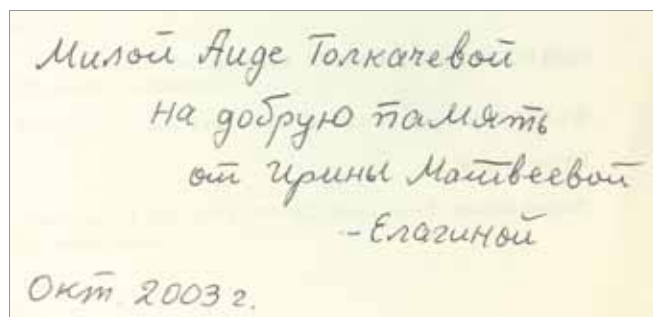 Милой Аиде Толкачевой
на добрую память
от Ирины Матвеевой
-Елагиной
Окт 2003 г.